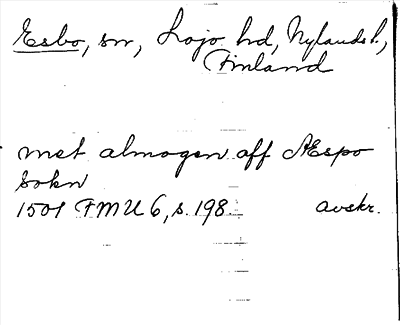 Esbo, sn, Lojo hd, Nylands l.,
Finland
met almogen aff Æspo
sokn
1501 FMU 6, s. 198. avskr.